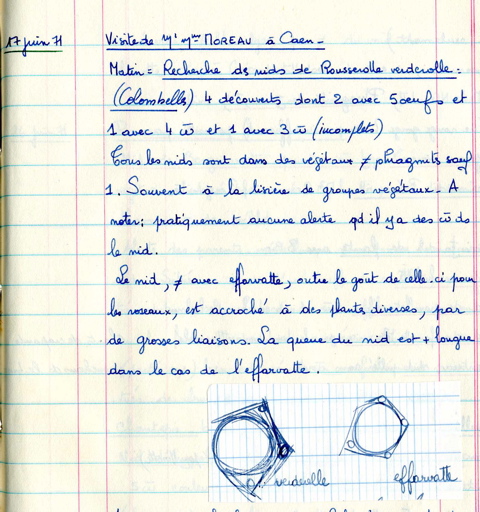 17 juin 71
Visite de Mr Mme MOREAU à Caen -
Matin = Recherche ds nids de Rousserolle verderolle :
(Colombells) 4 découverts dont 2 avec 5 oeufs et
1 avec 4 w̄ et 1 avec 3 w̄ (incomplets)
Tous les nids sont dans des végétaux ≠ phragmits sauf
1. Souvent à la lisière de groupes végétaux - A
noter : pratiquement aucune alerte qd il y a des w̄ ds
le nid.
Le nid, ≠ avec effarvatte, outre le goût de celle-ci pour
les roseaux, est accroché à des plants diverses, par
de grosses liaisons. La queue du nid est + longue
dans le cas de l'effarvatte.
verderolle
effarvatte